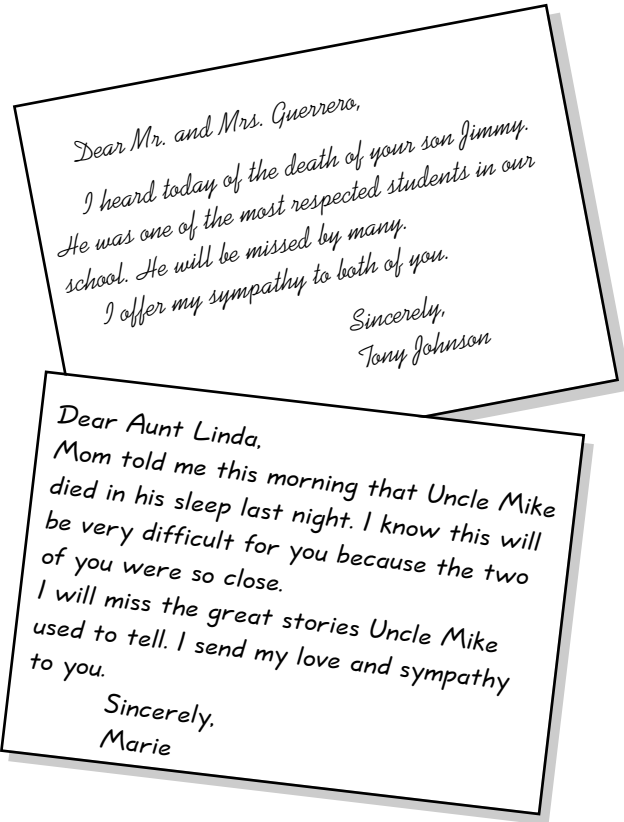 Dear Mr. and Mrs. Guerrero,
I heard today of the death of your son Jimmy.
He was one of the most respected students in our
school. He will be missed by many.
I offer my sympathy to both of you.
Sincerely,
Tony Johnson
Dear Aunt Linda,
Mom told me this morning that Uncle Mike
died in his sleep last night. I know this will
be very difficult for you because the two
of you were so close.
I will miss the great stories Uncle Mike
used to tell. I send my love and sympathy
to you.
Sincerely,
Marie